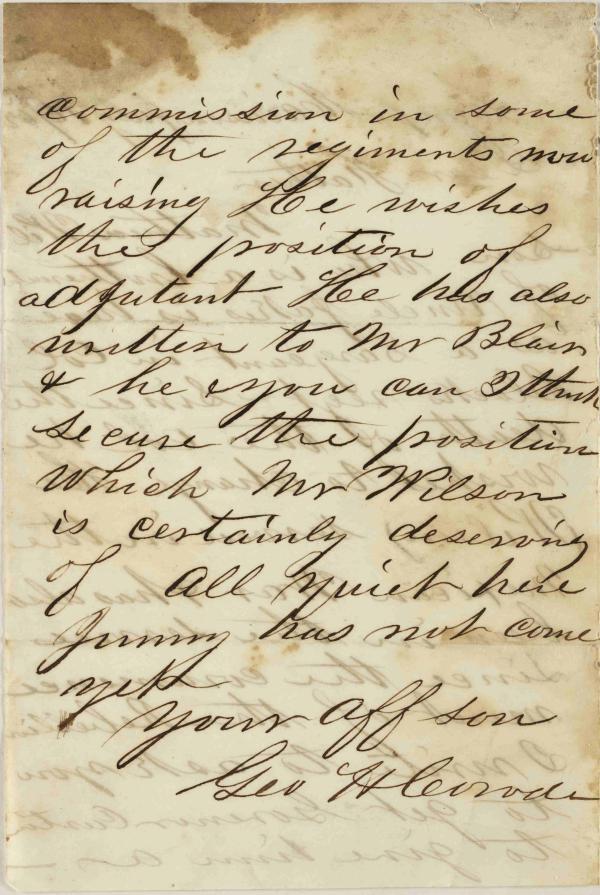 commission in some
of the regiments now
raising He wishes
the position of
adjutant He has also
written to Mr Blair
& he & you can I think
secure the position
which Mr Wilson
is certainly deserving
of All quiet here
Jimmy has not come
yet
Your aff son
Geo H Covode